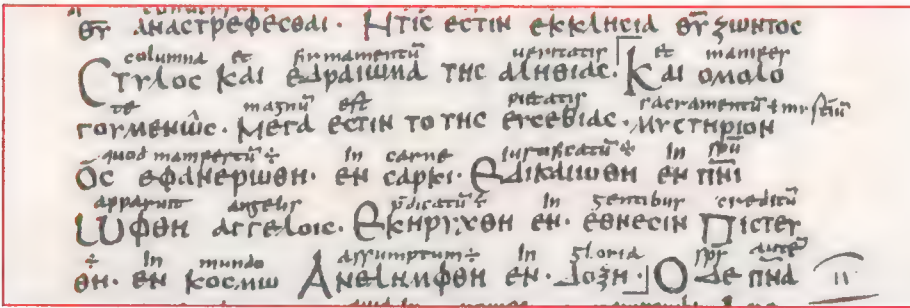 Θ̅Υ̅ ΑΝΑCΤΡΕΦΕCΘΑΙ· ΗΤΙC ΕCΤΙΝ ΕΚΚΛΗCΙΑ Θ̅Υ̅ ΖΩΝΤΟC
columna et firmamentū ueritatis et manifes
CΤΥΛΟC ΚΑΙ ΕΔΡΑΙΩΜΑ ΤΗC ΑΛΗΘΙΑC· ΚΑΙ ΟΜΟΛΟ
te magnū est pietatis sacramentū ł
ΓΟΥΜΕΝΩC· ΜΕΓΑ ΕCΤΙΝ ΤΟ ΤΗC ΕΥCΕΒΙΑC· ΜΥCΤΗΡΙΟΝ
quod ÷ in carne iustificatū ÷ in sp̅u̅
ΟC ΕΦΑΝΕΡΩΘΗ· ΕΝ CΑΡΚΙ· ΕΔΙΚΑΙΩΘΗ ΕΝ Π̅Ν̅Ι̅
apparuit angelis p̄dicatū ÷ in gentibus creditū
ΩΦΘΗ ΑΓΓΕΛΟΙC· ΕΚΗΡΥΧΘΗ ΕΝ· ΕΘΝΕCΙΝ ΠΙCΤΕΥ
÷ in mundo assumptum ÷ in gloria sp̅s̅ autē
ΘΗ· ΕΝ ΚΟCΜΩ ΑΝΕΛΗΜΦΘΗ ΕΝ· ΔΟΞΗ· Ο ΔΕ Π̅Ν̅Α̅